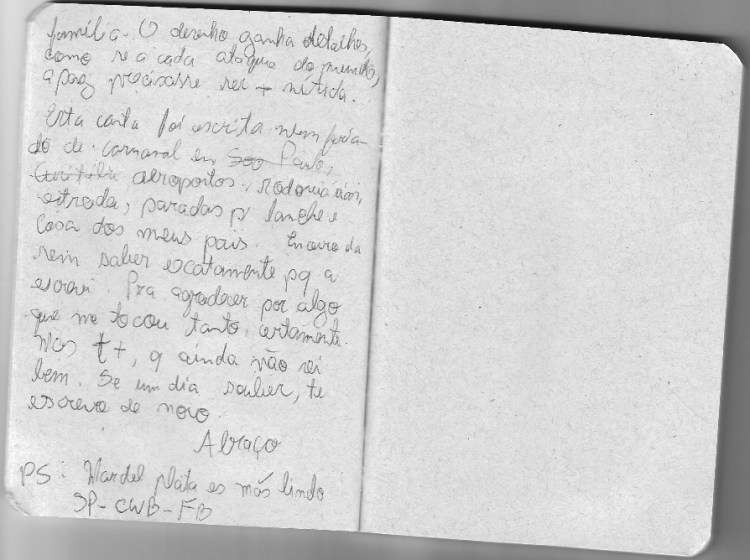 família. O desenho ganha detalhes,
como se a cada ataque do mundo,
a paz precisasse ser + nítida.
Esta carta foi escrita num feria-
do de carnaval em São Paulo,
Curitiba aeroportos, rodoviárias,
estrada, paradas p/ lanche e
casa dos meus pais. Encerro da
sem saber exatamente pq a
escrevi. Pra agradecer por algo
que me tocou tanto, certamente.
Mas t +, q ainda não sei
bem. Se um dia souber, te
escrevo de novo.
Abraço
PS: Mardel plata es más lindo
SP-CWB-FB